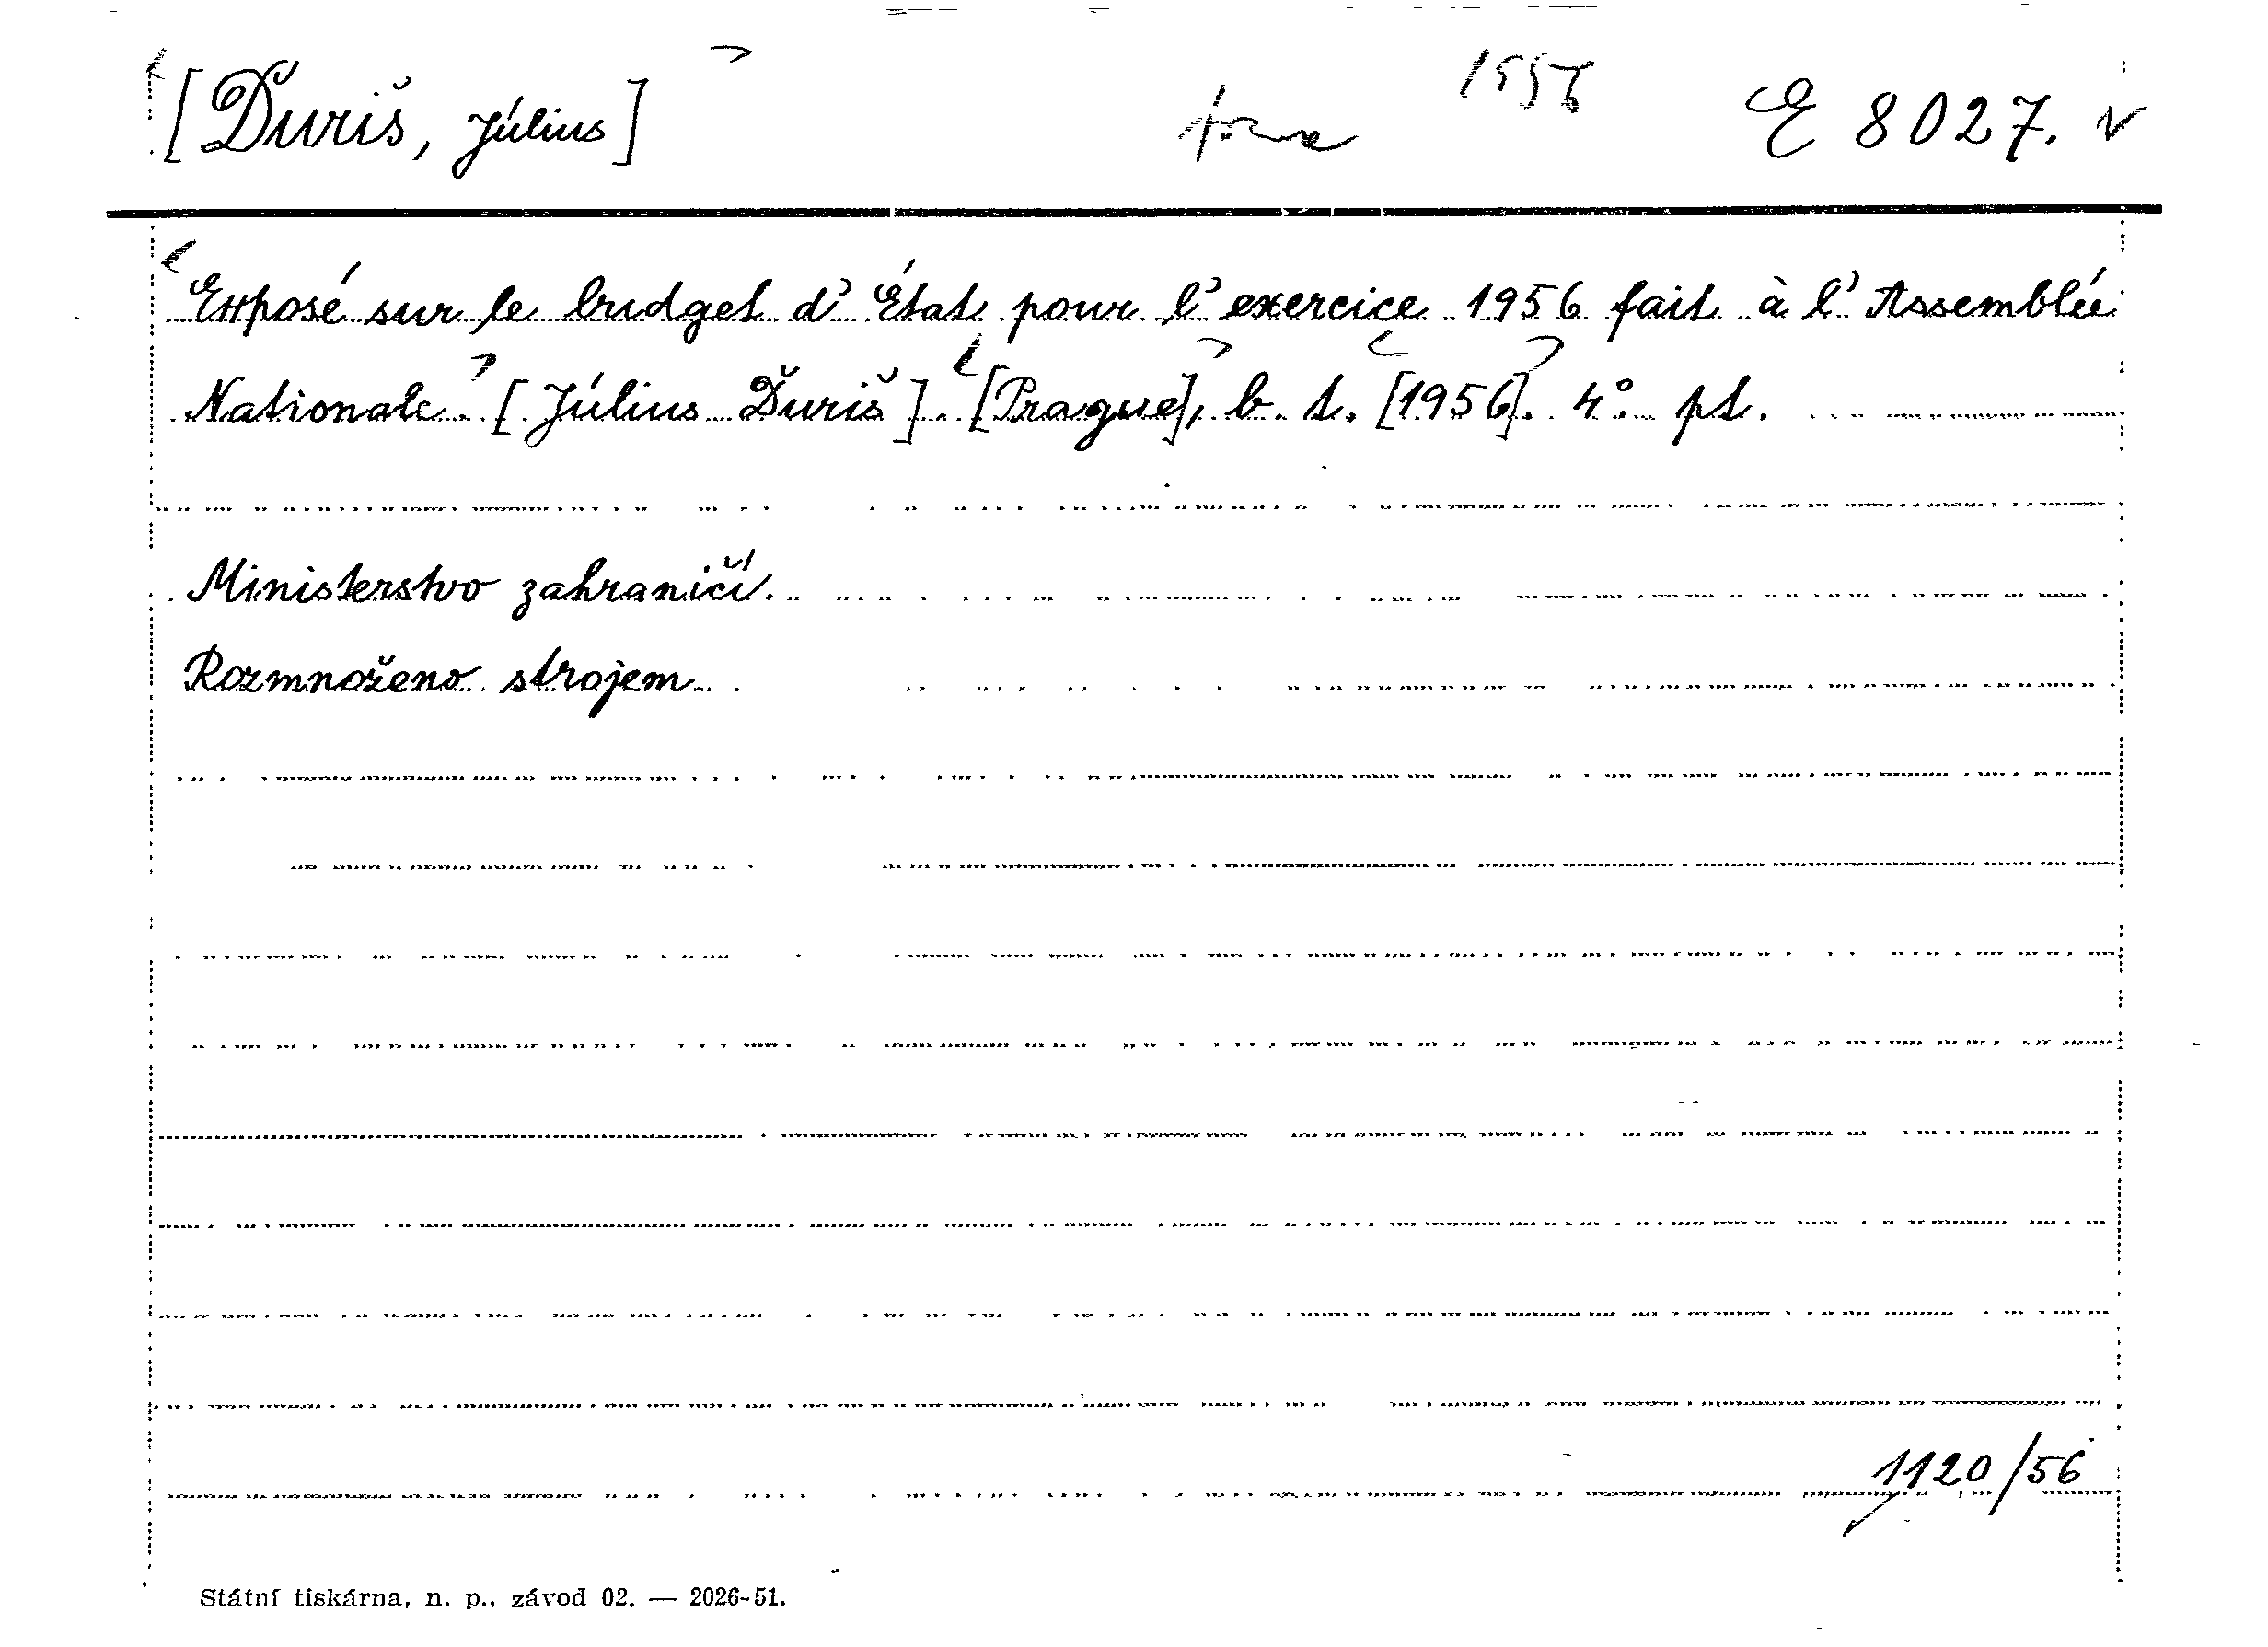 [Ďuriš, Július] 1956 E 8027.
Exposé sur le budget d'État pour l'exercice 1956 fait à l'Assemblée
Nationale. [Július Ďuriš]. [Prague], b. t. [1956]. 4°. pt.
Ministerstvo zahraničí.
Rozmnoženo strojem.
1120/56
Státní tiskárna, n. p., závod 02. — 2026-51.